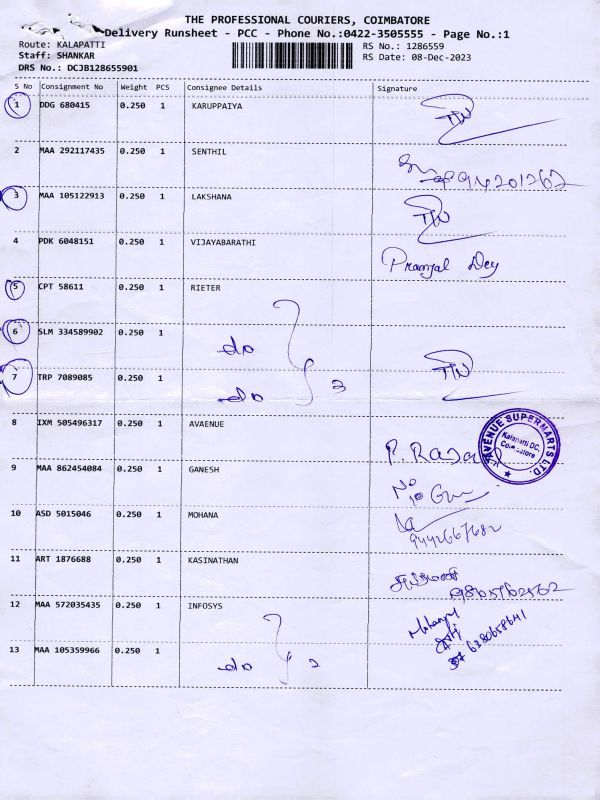 THE PROFESSIONAL COURIERS, COIMBATORE
Delivery Runsheet - PCC - Phone No.:0422-3505555 - Page No.:1
Route: KALAPATTI
RS No.: 1286559
Staff: SHANKAR
RS Date: 08-Dec-2023
DRS No.: DCJB128655901
S No Consignment No Weight PCS Consignee Details Signature
1 DDG 680415 0.250 1 KARUPPAIYA
2 MAA 292117435 0.250 1 SENTHIL
3 MAA 105122913 0.250 1 LAKSHANA
4 PDK 6048151 0.250 1 VIJAYABARATHI
Pramjal Dey
5 CPT 58611 0.250 1 RIETER
6 SLM 334589902 0.250 1
do
7 TRP 7089085 0.250 1
do 3
8 IXM 505496317 0.250 1 AVAENUE
AVENUE SUPERMARTS LTD.
Kalapatti DC,
Coimbatore
9 MAA 862454084 0.250 1 GANESH
10 ASD 5015046 0.250 1 MOHANA
9442667682
11 ART 1876688 0.250 1 KASINATHAN
9865762562
12 MAA 572035435 0.250 1 INFOSYS
6380658641
13 MAA 105359966 0.250 1
do 2